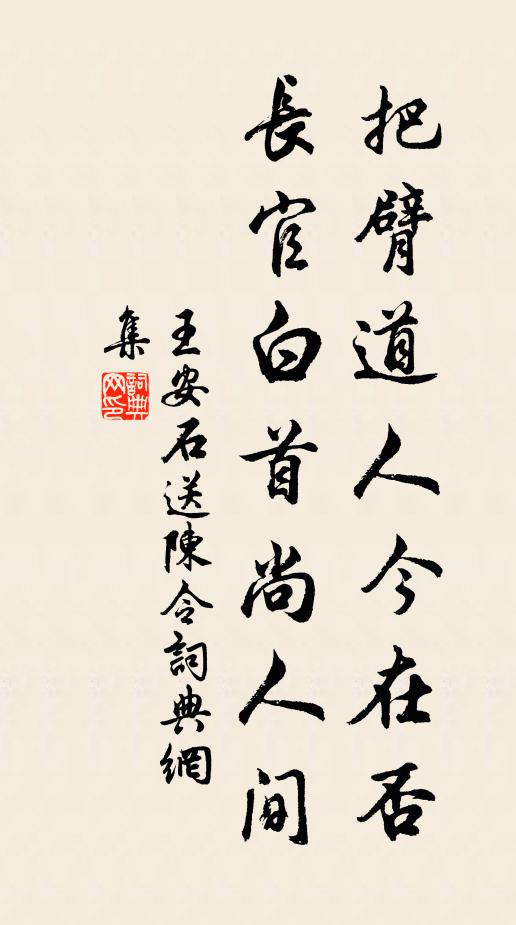 把臂道人今在否
長官白首尚人间
王安石送陳令詞典網
集
詞典网印